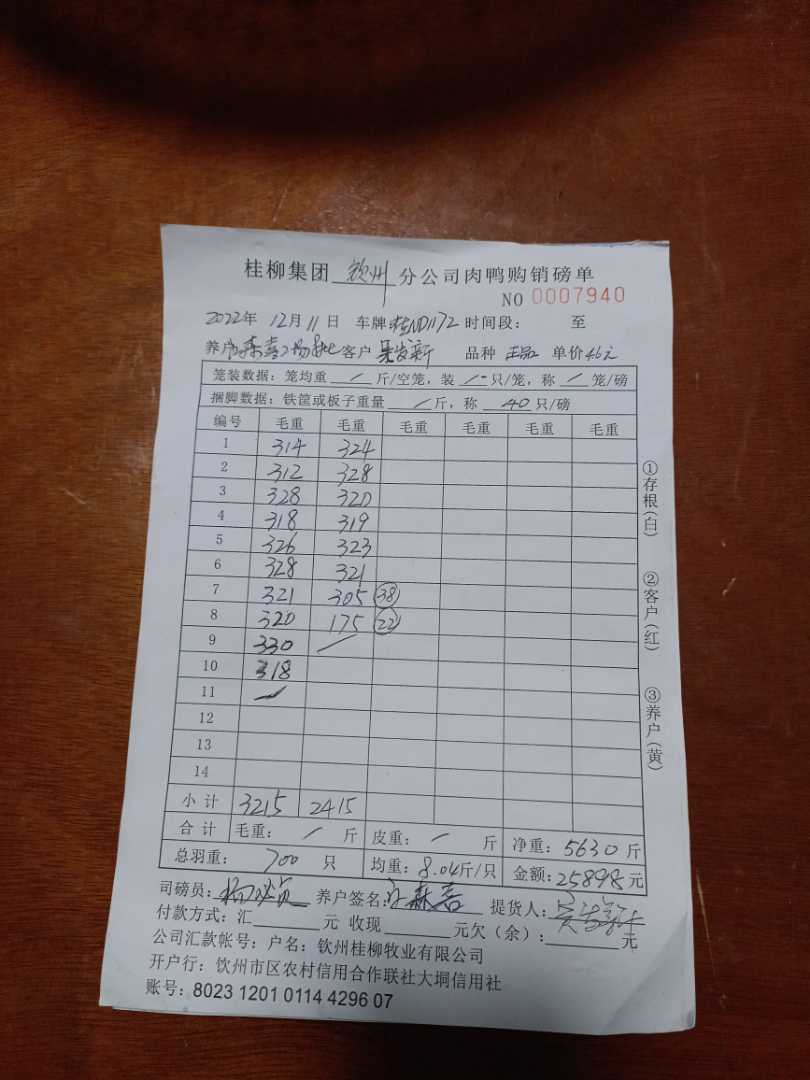 桂柳集团 钦州 分公司肉鸭购销磅单
NO 0007940
2022年 12月 11日 车牌 桂ND1172 时间段： 至
养户 森喜 客户 吴发新 品种 正品 单价 4.6元
笼装数据：笼均重 / 斤/空笼，装 / 只/笼，称 / 笼/磅
捆脚数据：铁筐或板子重量 / 斤，称 40 只/磅
编号 毛重 毛重 毛重 毛重 毛重 毛重
1 314 324
2 312 328
3 328 320
4 318 319
5 326 323
6 328 321
7 321 305 38
8 320 175 22
9 330 /
10 318
11
12
13
14
小计 3215 2415
合计 毛重： / 斤 皮重： / 斤 净重：5630 斤
总羽重： 700 只 均重：8.04斤/只 金额：25898元
司磅员： 养户签名： 森喜 提货人：吴发新
付款方式：汇 元 收现 元欠（余）： 元
公司汇款帐号：户名：钦州桂柳牧业有限公司
开户行：钦州市区农村信用合作联社大垌信用社
账号：8023 1201 0114 4296 07
①存根(白)
②客户(红)
③养户(黄)